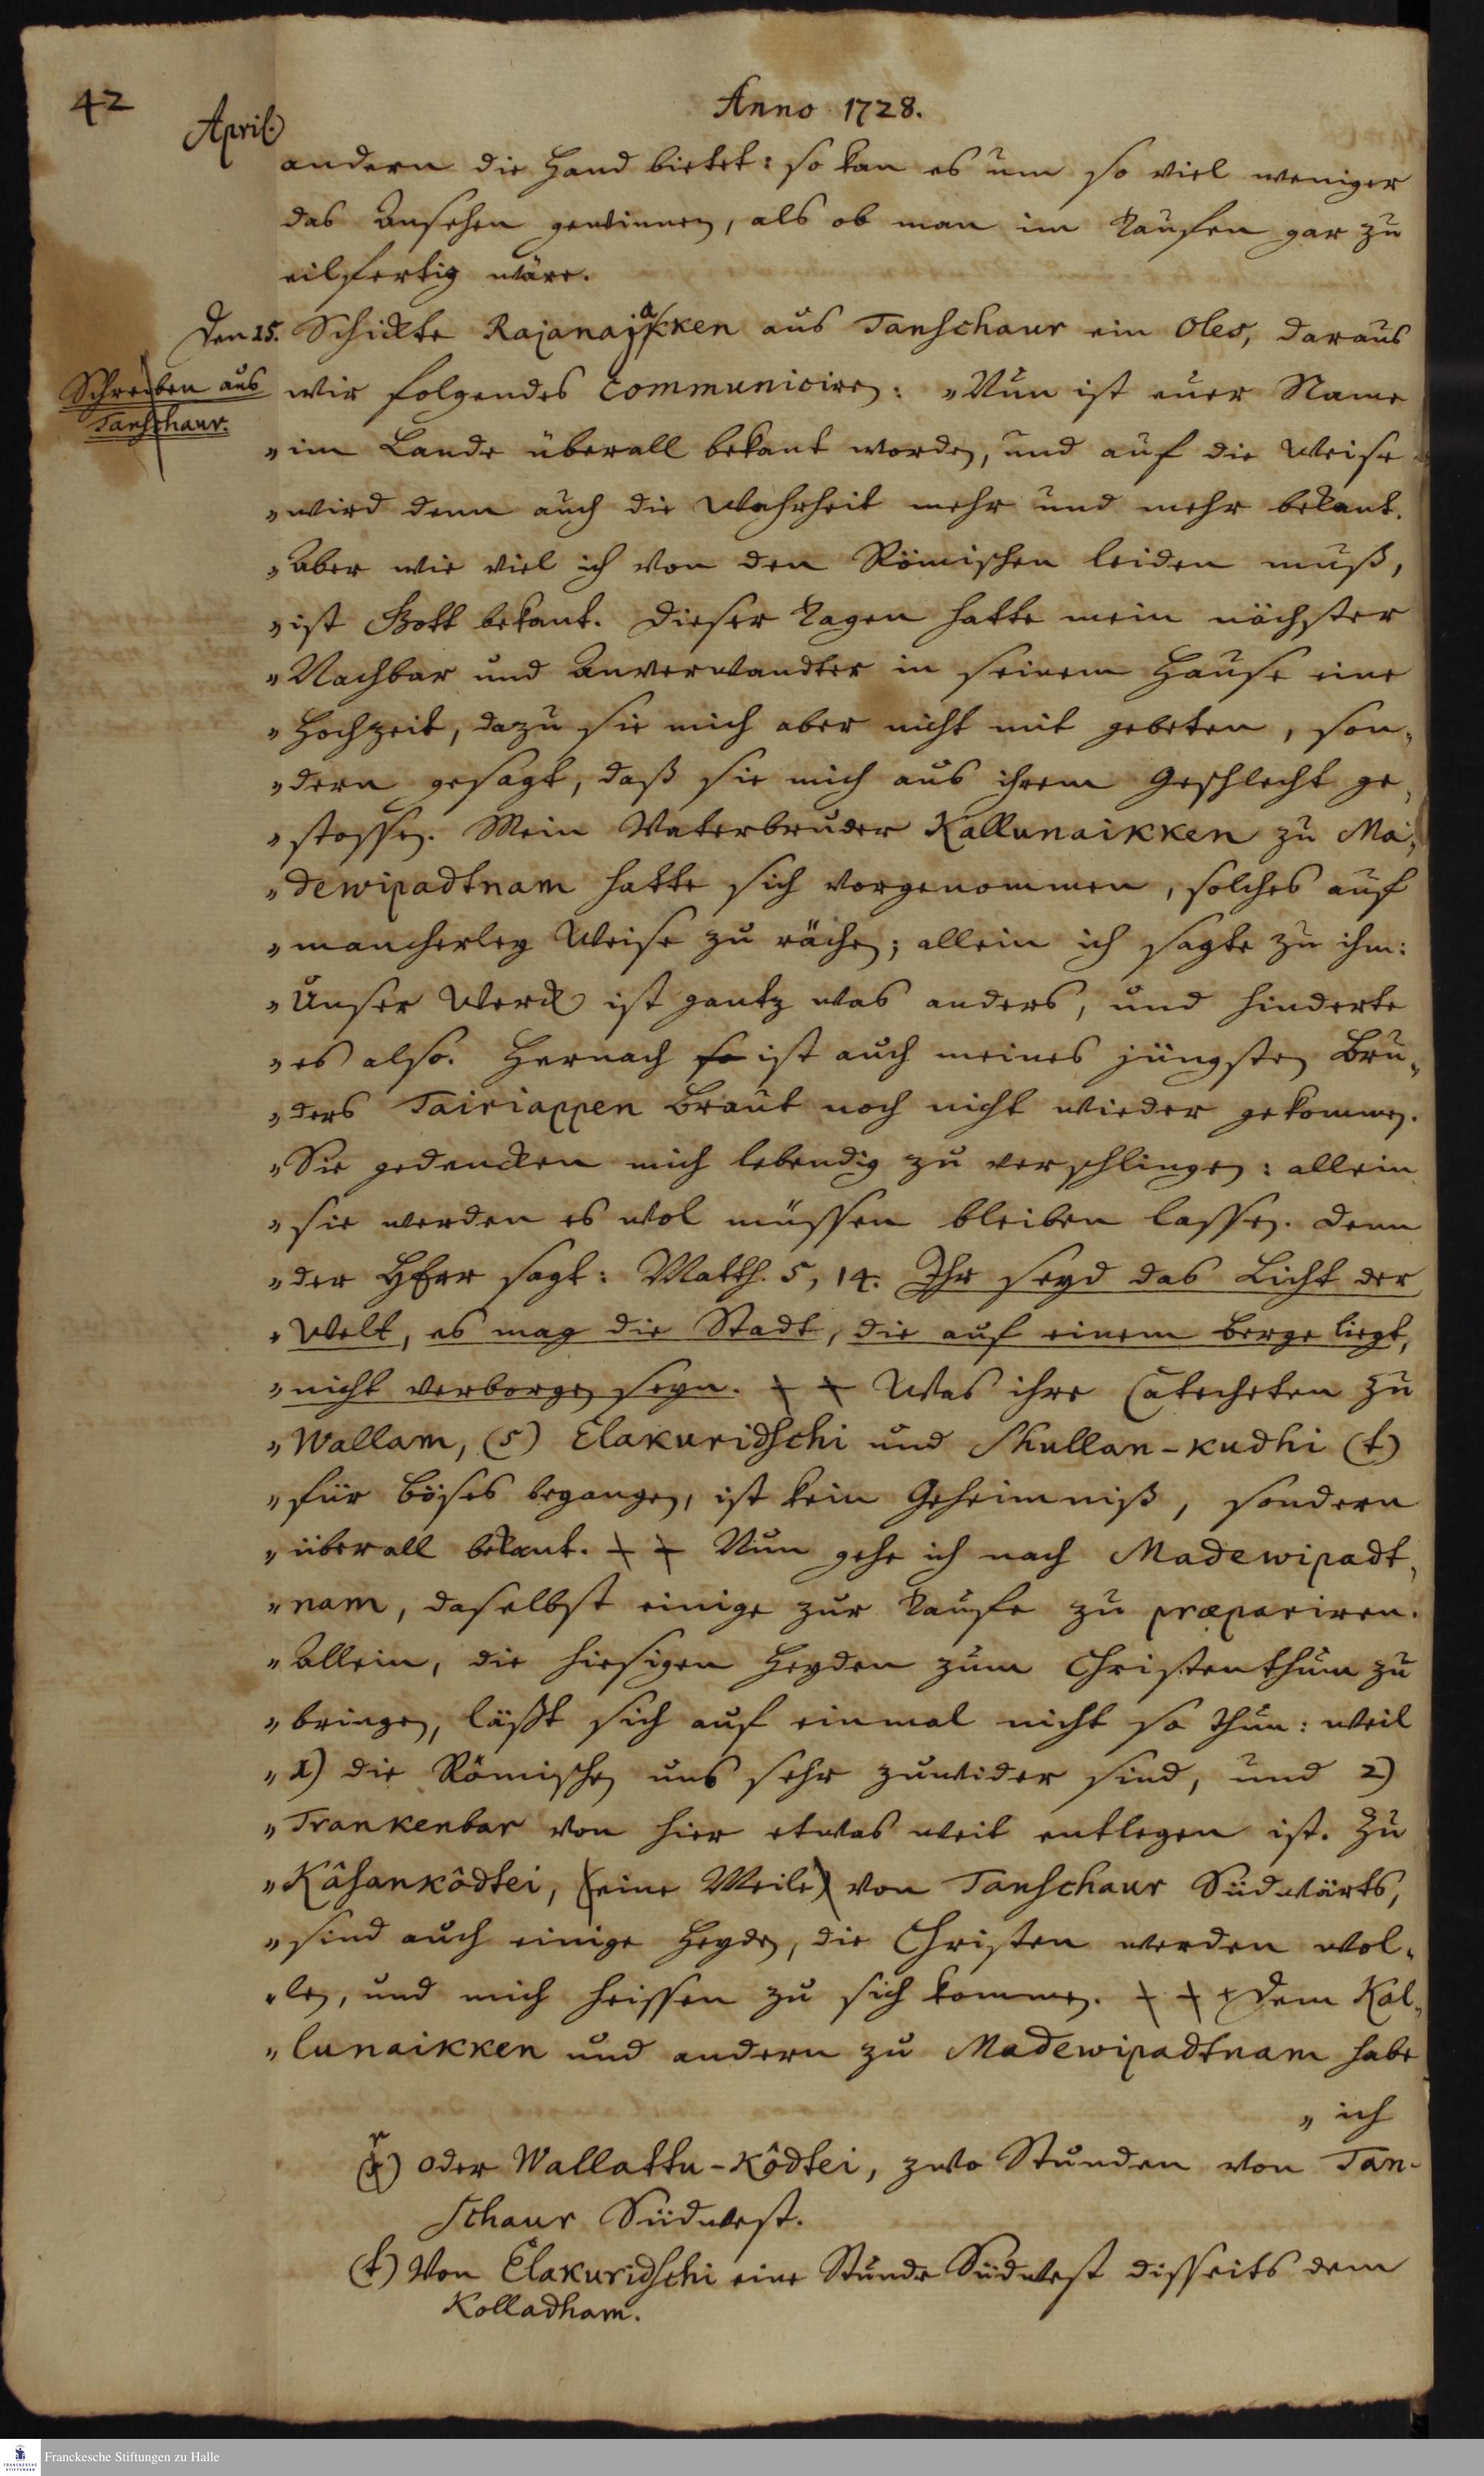 42
Anno 1728.
April.
andern die Hand bietet: so kan es um so viel weniger
das Ansehen gewinnen, als ob man im Taufen gar zu
eilfertig wäre.
Den 25. Schickte Rajanaikken aus Tanschaur ein Oles, daraus
Schreiben aus
Tanschaur.
wir folgendes communiciren: „Nun ist euer Name
„im Lande überall bekant worden, und auf die Weise
„wird denn auch die Wahrheit mehr und mehr bekant.
„Aber wie viel ich von den Römischen leiden muß,
„ist Gott bekant. Dieser Tagen hatte mein nächster
„Nachbar und Anverwandter in seinem Hause eine
„Hochzeit, dazu sie mich aber nicht mit gebeten, son„
„dern gesagt, daß sie mich aus ihrem Geschlecht ge„
„stossen. Mein Vaterbruder Kallunaikken zu Ma„
„dewipadtnam hatte sich vorgenommen, solches auf
„mancherley Weise zu rächen; allein ich sagte zu ihm:
„Unser Werck ist gantz was anders, und hinderte
„es also. Hernach so ist auch meines jüngsten Bru„
„ders Tairiappen Braut noch nicht wieder gekommen.
„Sie gedencken mich lebendig zu verschlingen: allein
„sie werden es wol müssen bleiben lassen. Denn
„der HErr sagt: Matth. 5, 14. Ihr seyd das Licht der
„Welt, es mag die Stadt, die auf einem Berge liegt,
„nicht verborgen seyn. + + Was ihre Catecheten zu
„Wallam, (s) Elakuridschi und Skullan-kudhi (t)
„für Böses begangen, ist kein Geheimniß, sondern
„überall bekant. + + Nun gehe ich nach Madewipadt„
„nam, daselbst einige zur Taufe zu præpariren.
„Allein, die hiesigen Heyden zum Christenthum zu
„bringen, läßt sich auf einmal nicht so thun: weil
„1) die Römischen uns sehr zuwider sind, und 2)
„Trankenbar von hier etwas weit entlegen ist. Zu
„Kâsankôdtei, (eine Meile) von Tanschaur Südwärts,
„sind auch einige Heyden, die Christen werden wol„
„len, und mich heissen zu sich kommen. + + + Dem Kal„
„lunaikken und andern zu Madewipadtnam habe
„ich
(s) oder Wallattu-Kôdtei, zwo Stunden von Tan-
schaur Südwest.
(t) Von Elakuridschi eine Stunde Südwest disseits dem
Kolladham.
Franckesche Stiftungen zu Halle